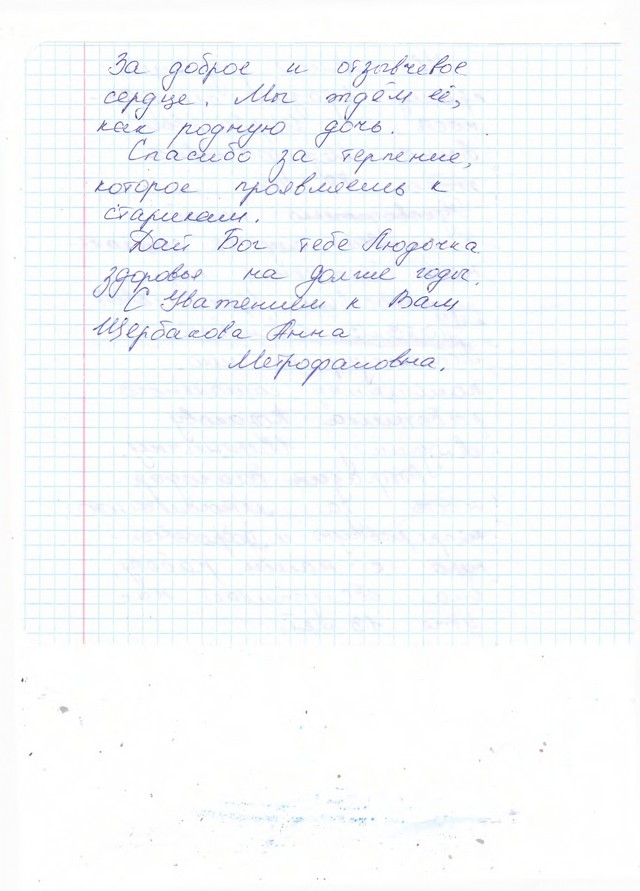 За доброе и отзывчевое
сердце. Мы ждём её,
как родную дочь.
Спасибо за терпение,
которое проявляешь к
старикам.
Дай Бог тебе Людочка
здоровья на долгие годы.
С Уважением к Вам
Щербакова Анна
Метрофановна.